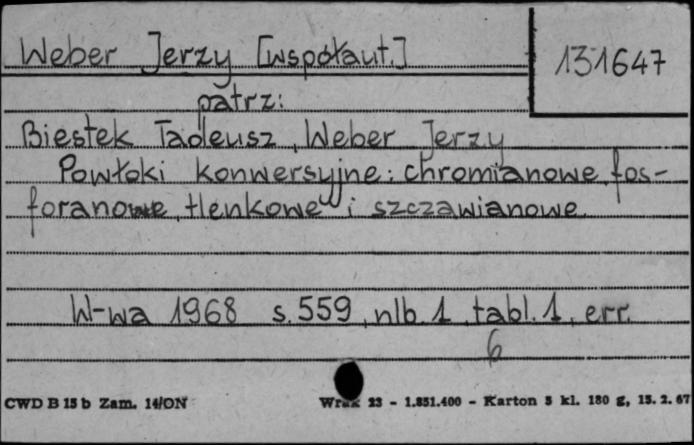 Weber Jerzy [współaut.]
131647
patrz:
Biestek Tadeusz, Weber Jerzy
Powłoki konwersyjne: chromianowe, fos-
foranowe, tlenkowe i szczawianowe.
W-wa 1968 s. 559, nlb. 1, tabl. 1, err.
6
CWD B 15 b Zam. 14/ON
23 - 1.851.400 - Karton 5 kl. 180 g, 15. 2. 67